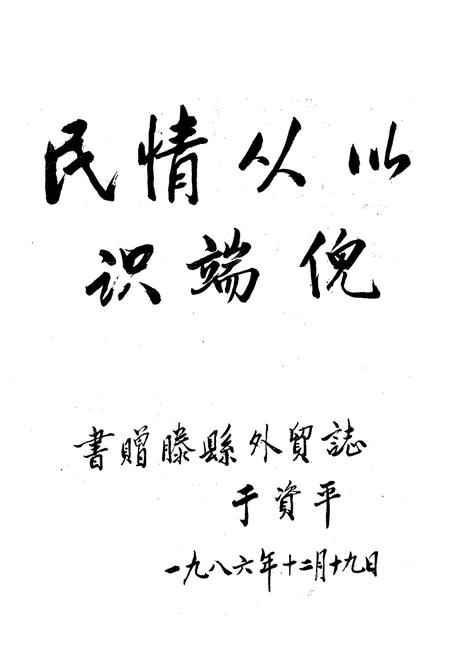 民情从以
识端倪
书赠滕縣外贸誌
于資平
一九八六年十二月十九日